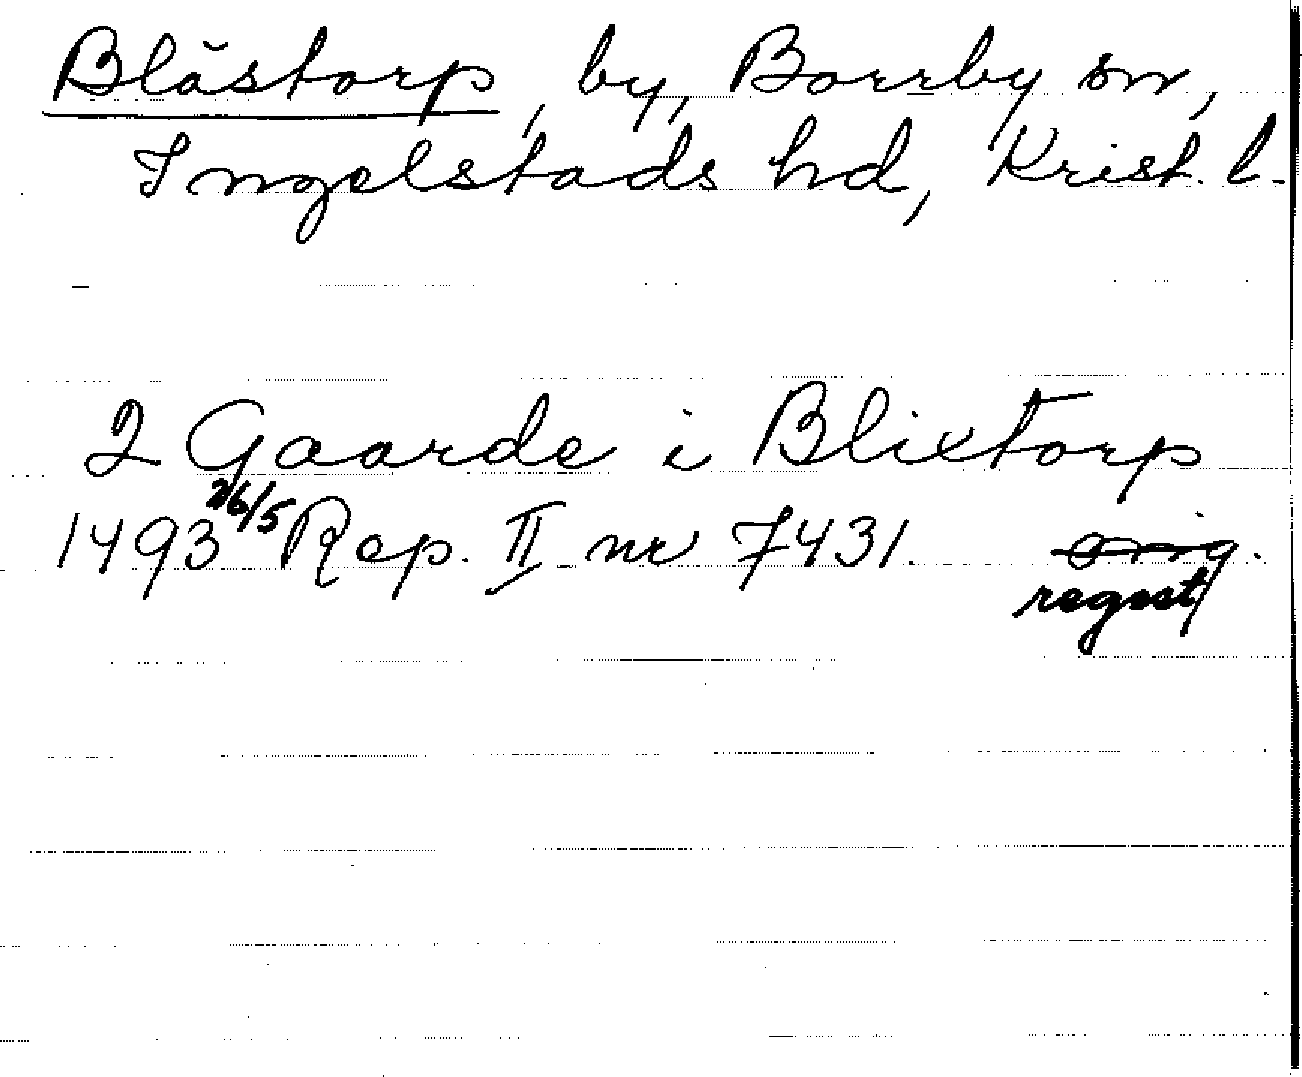 Blåstorp, by, Borrby sn,
Ingelstads hd, Krist. l.
2 Gaarde i Blixtorp
1493 26/5 Rep. II nr 7431. orig.
regest